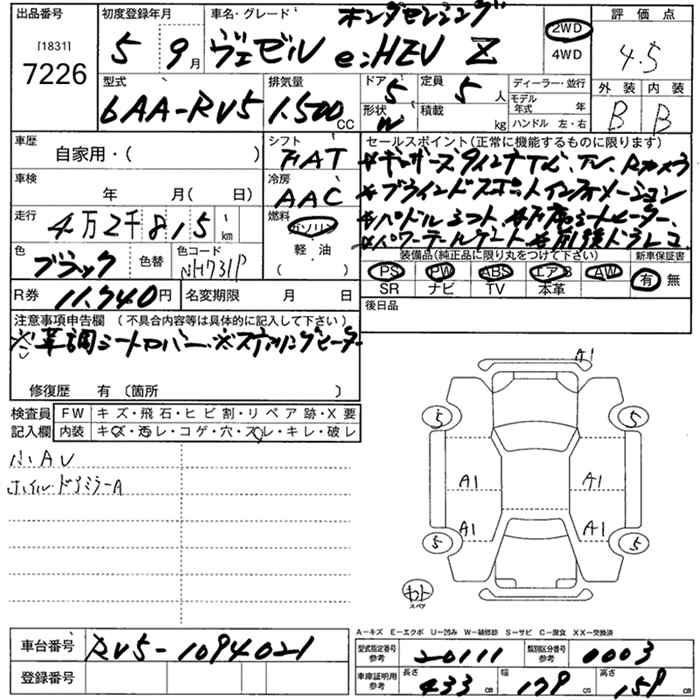 出品番号
[1831]
7226
初度登録年月
5 9月
車名・グレード
ホンダセンシング
ヴェゼル e:HEV Z
2WD
4WD
評価点
4.5
外装 内装
B B
型式
6AA-RV5
排気量
1.500 CC
ドア 5
形状 W
定員 5 人
積載 kg
ディーラー・並行
モデル年式 年
ハンドル 左・右
車歴
自家用・( )
シフト
FAT
車検
年 月( 日)
冷房
AAC
走行
4万2千815 km
燃料
ガソリン
軽・油
( )
色
ブラック
色替
色コード
NH731P
セールスポイント(正常に機能するものに限ります)
*ギャザーズ9インチナビ、TV、Rカメラ
*ブラインドスポットインフォメーション
*パドルシフト *前席シートヒーター、
*パワーテールゲート *前後ドラレコ
装備品(純正品に限り丸をつけて下さい)
PS PW ABS エアB AW
SR ナビ TV 本革
新車保証書
有 無
R券 11.740円
名変期限 月 日
後日品
注意事項申告欄 (不具合内容等は具体的に記入して下さい)
※革調シートカバー ※ステアリングヒーター
修復歴 有(箇所 )
検査員
記入欄
FW キズ・飛石・ヒビ割・リペア跡・X要
内装 キズ・汚レ・コゲ・穴・スレ・キレ・破レ
小AU
ホイル・ドアミラーA
A1
5 5
A1 A1
A1 A1
5 5
スペア
A-キズ E-エクボ U-凹み W-補修跡 S-サビ C-腐食 XX-交換済
車台番号 RV5-1094021
登録番号
型式指定番号
参考
20111
類別区分番号
参考
0003
車庫証明用
参考
長さ 433 cm
幅 179 cm
高さ 159 cm